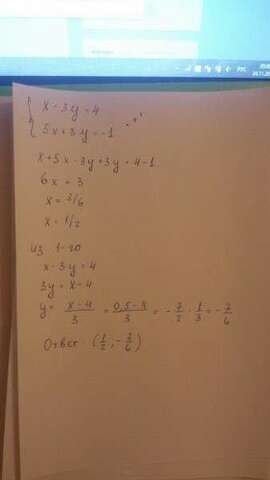 x - 3y = 4
5x + 3y = -1
x + 5x - 3y + 3y = 4 - 1
6x = 3
x = 3/6
x = 1/2
из 1-го
x - 3y = 4
3y = x - 4
y = (x-4)/3 = (0,5-4)/3 = -7/2 · 1/3 = -7/6
Ответ: (1/2; -7/6)